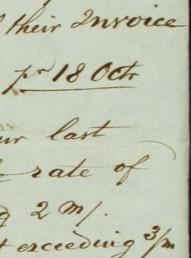 their Invoice
pr 18 Octr
last
rate of
2 m/.
exceeding 3/m